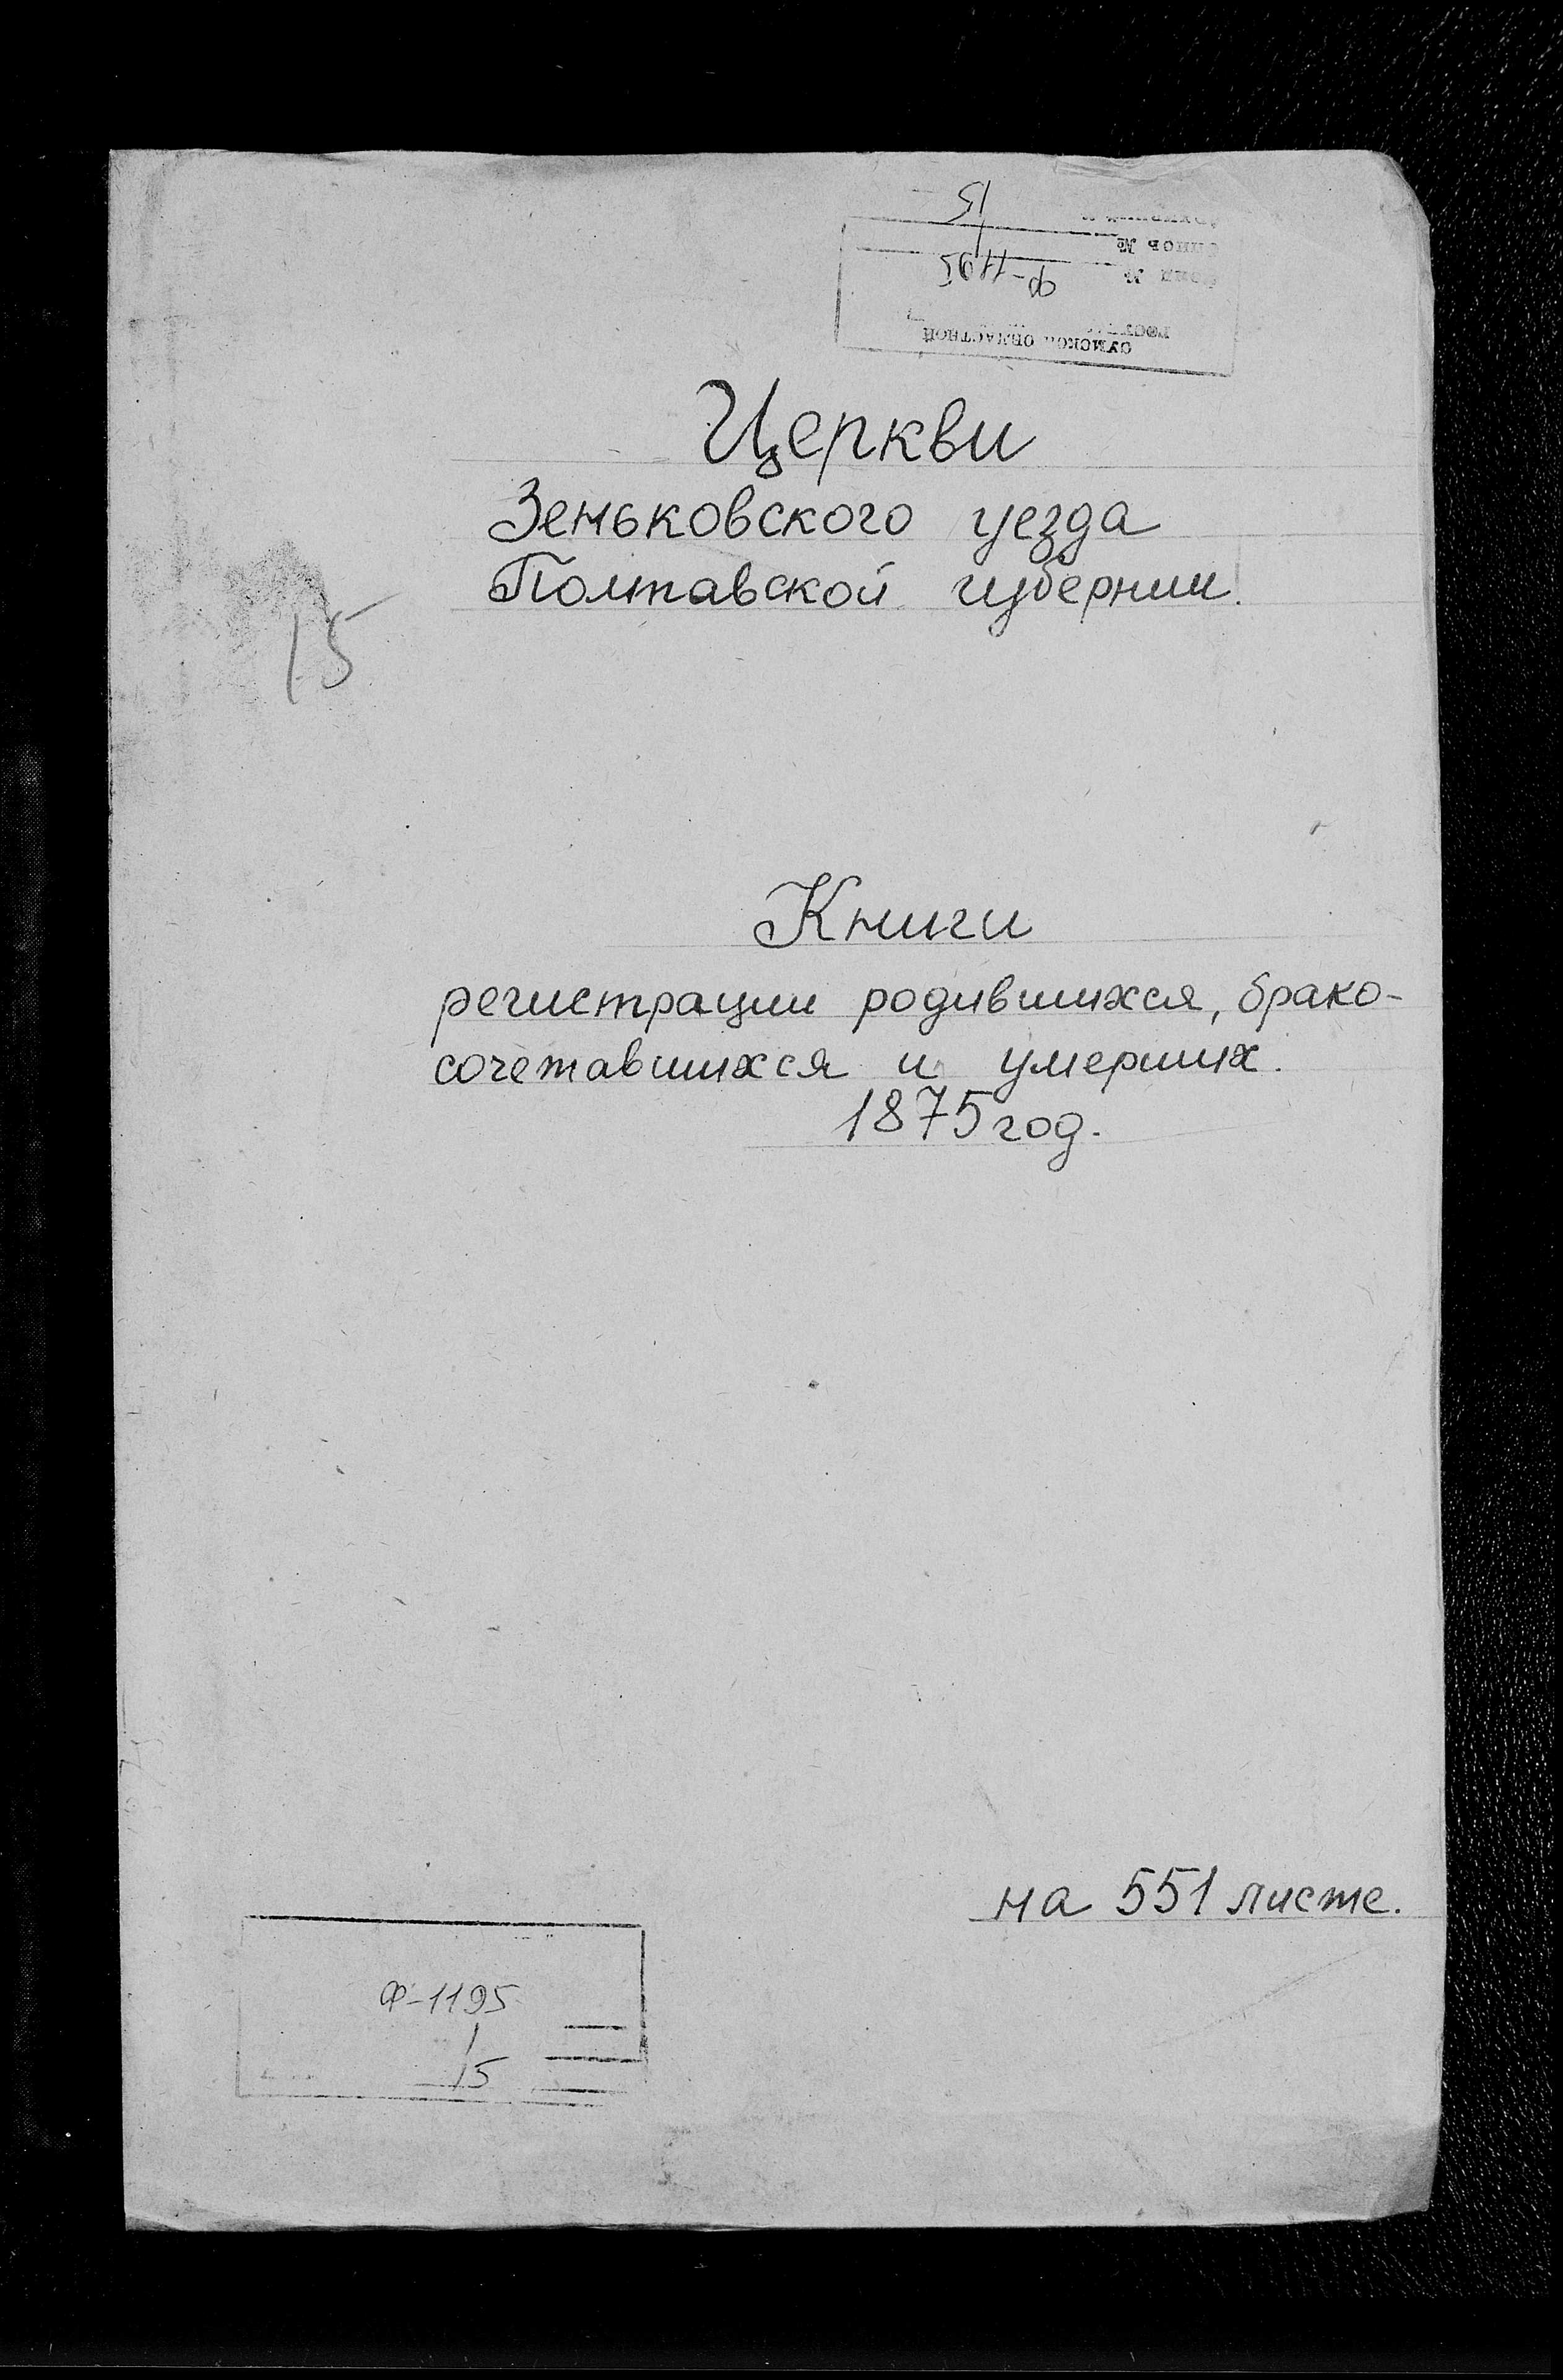 СУМСКОЙ ОБЛАСТНОЙ
Ф-1195
15
Церкви
Зеньковского уезда
Полтавской губернии.
15
Книги
регистрации родившихся, брако-
сочетавшихся и умерших.
1875 год.
на 551 листе.
Ф-1195
15